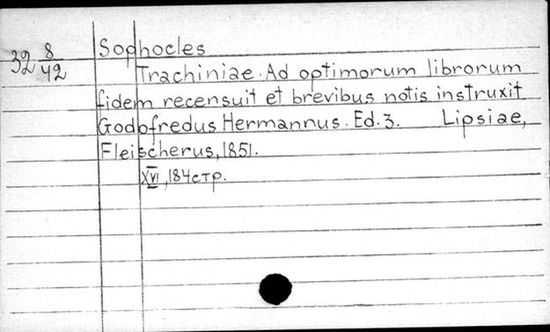 Sophocles
32 8/42
Trachiniae. Ad optimorum librorum
fidem recensuit et brevibus notis instruxit
Godofredus Hermannus. Ed. 3. Lipsiae,
Fleischerus, 1851.
XVI, 184 стр.